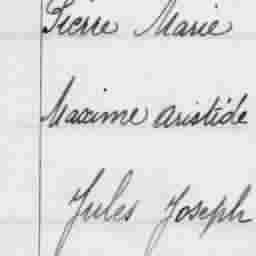 Pierre Marie
Maxime Aristide
Jules Joseph